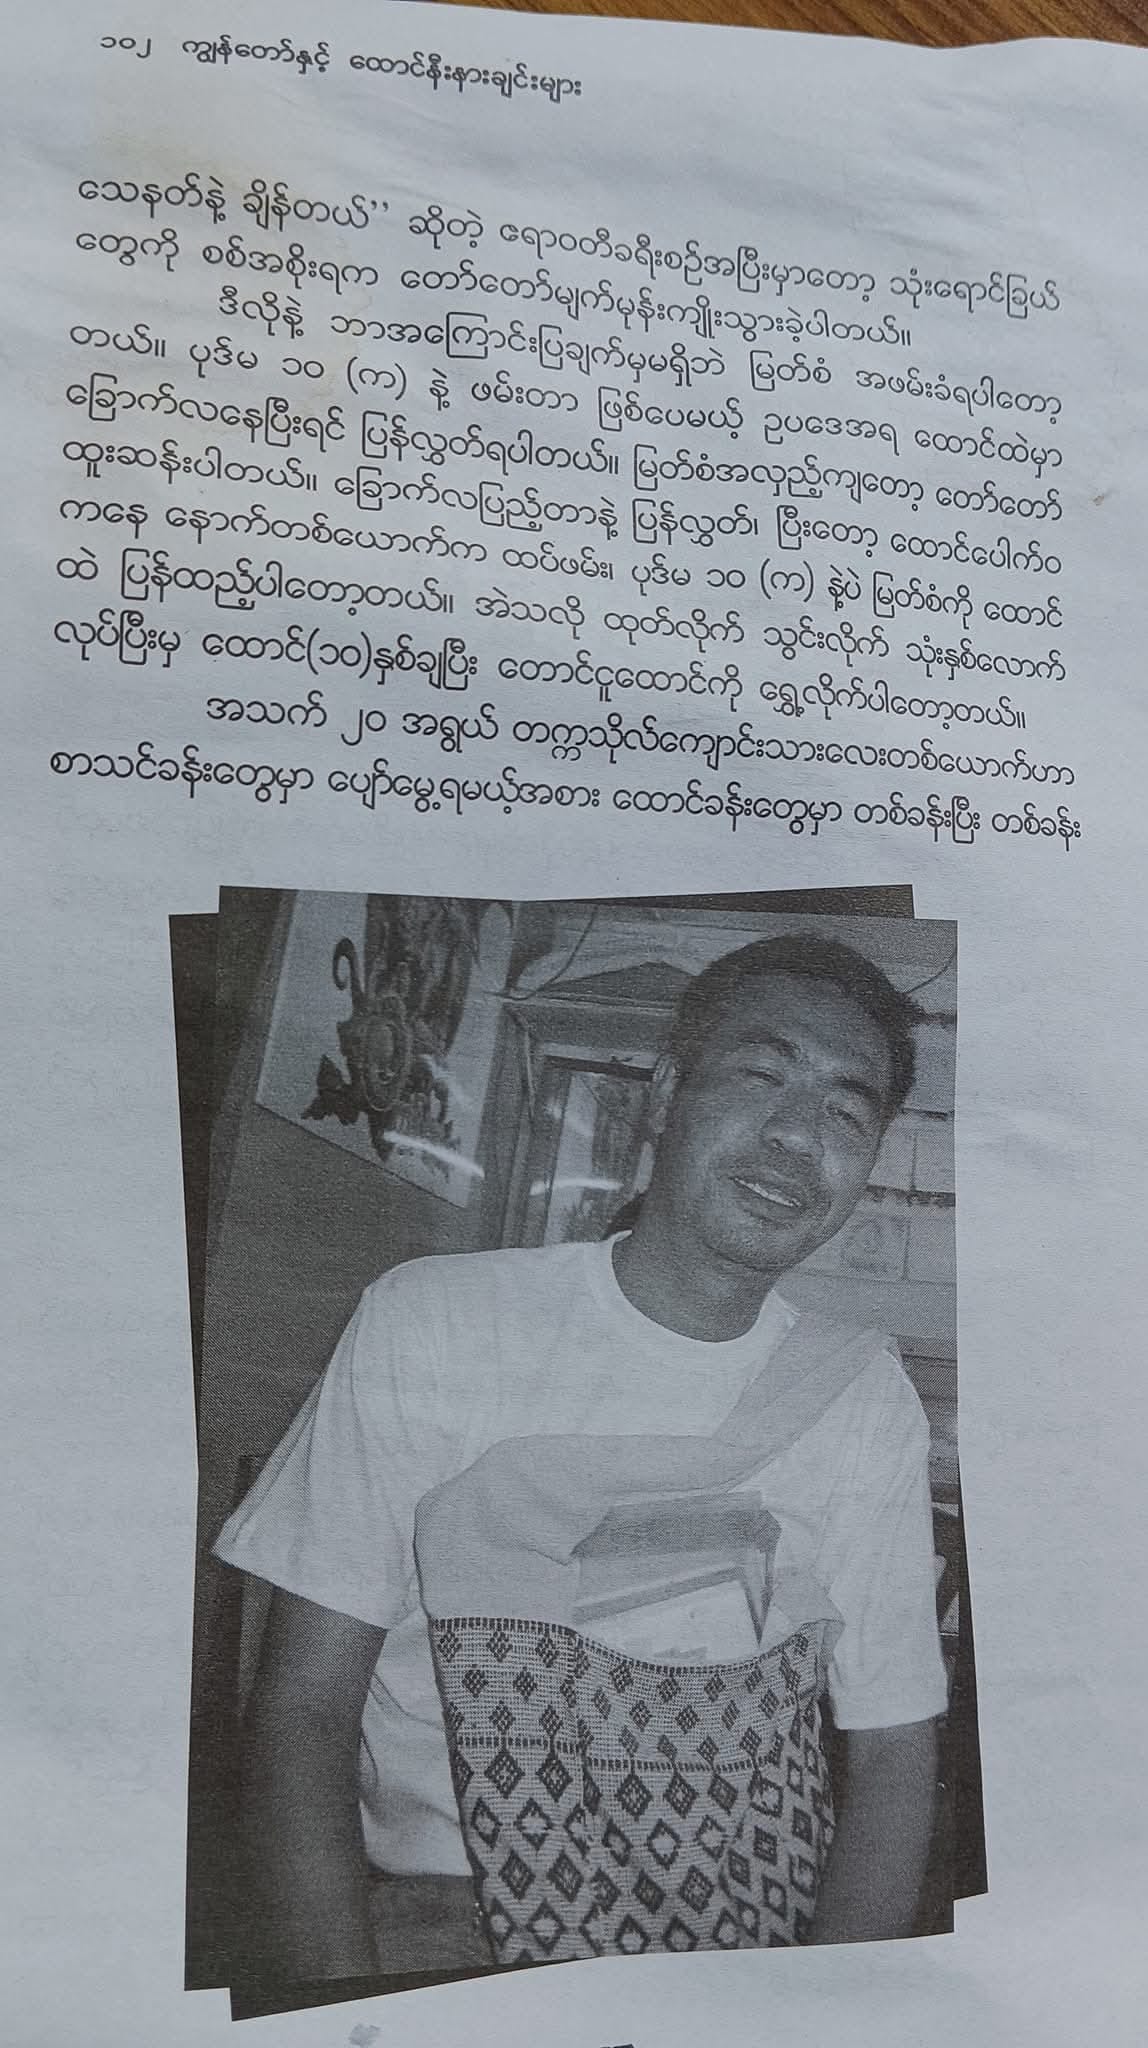 ၁၀၂ ကျွန်တော်နှင့် ထောင်နီးနားချင်းများ
သေနတ်နဲ့ ချိန်တယ်” ဆိုတဲ့ ဧရာဝတီခရီးစဉ်အပြီးမှာတော့ သုံးရောင်ခြယ်
တွေကို စစ်အစိုးရက တော်တော်မျက်မုန်းကျိုးသွားခဲ့ပါတယ်။
ဒီလိုနဲ့ ဘာအကြောင်းပြချက်မှမရှိဘဲ မြတ်စံ အဖမ်းခံရပါတော့
တယ်။ ပုဒ်မ ၁၀ (က) နဲ့ ဖမ်းတာ ဖြစ်ပေမယ့် ဥပဒေအရ ထောင်ထဲမှာ
ခြောက်လနေပြီးရင် ပြန်လွှတ်ရပါတယ်။ မြတ်စံအလှည့်ကျတော့ တော်တော်
ထူးဆန်းပါတယ်။ ခြောက်လပြည့်တာနဲ့ ပြန်လွှတ်၊ ပြီးတော့ ထောင်ပေါက်ဝ
ကနေ နောက်တစ်ယောက်က ထပ်ဖမ်း၊ ပုဒ်မ ၁၀ (က) နဲ့ပဲ မြတ်စံကို ထောင်
ထဲ ပြန်ထည့်ပါတော့တယ်။ အဲသလို ထုတ်လိုက် သွင်းလိုက် သုံးနှစ်လောက်
လုပ်ပြီးမှ ထောင်(၁၀)နှစ်ချပြီး တောင်ငူထောင်ကို ရွှေ့လိုက်ပါတော့တယ်။
အသက် ၂၀ အရွယ် တက္ကသိုလ်ကျောင်းသားလေးတစ်ယောက်ဟာ
စာသင်ခန်းတွေမှာ ပျော်မွေ့ရမယ့်အစား ထောင်ခန်းတွေမှာ တစ်ခန်းပြီး တစ်ခန်း